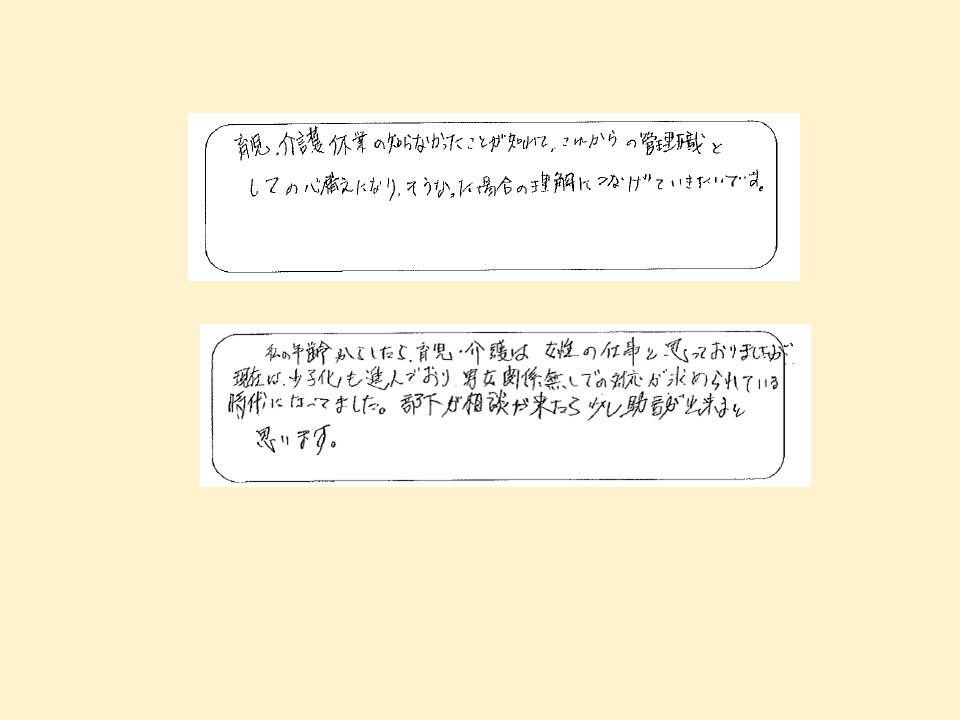 育児・介護休業の知らなかったことが知れて、これからの管理職と
しての心構えになり、そうなった場合の理解につなげていきたいです。
私の年齢からしたら、育児・介護は 女性の仕事と思っておりましたが
現在は、少子化も進んでおり 男女関係無しでの対応が求められている
時代になってました。部下が相談が来たら少し助言が出来ると
思います。